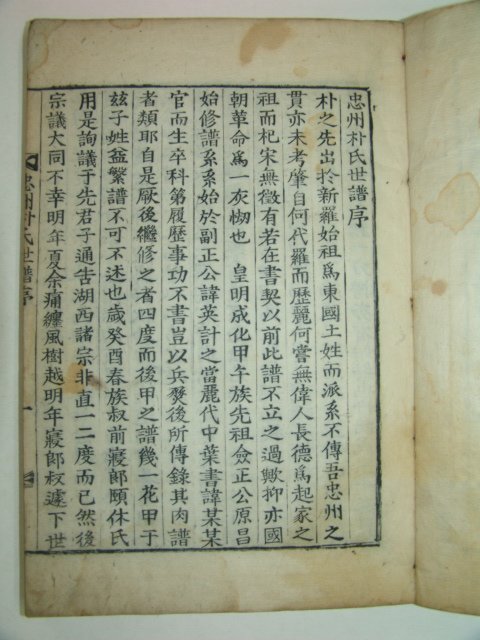 忠州朴氏世譜序
朴之先出於新羅始祖爲東國土姓而派系不傳吾忠州之
貫亦未考肇自何代羅而歷麗何嘗無偉人長德爲起家之
祖而杞宋無徵有若在書契以前此譜不立之過歟抑亦國
朝革命爲一灰劫也 皇明成化甲午族先祖僉正公原昌
始修譜系系始於副正公諱英計之當麗代中葉書諱某某
官而生卒科第履歷事功不書豈以兵燹後所傳錄其肉譜
者類耶自是厥後繼修之者四度而後甲之譜幾一花甲于
玆子姓益繁譜不可不述也歲癸酉春族叔前寢郞頤休氏
用是詢議于先君子通告湖西諸宗非直一二度而已然後
宗議大同不幸明年夏余痛纏風樹越明年寢郞叔遽下世
忠州朴氏世譜序 一